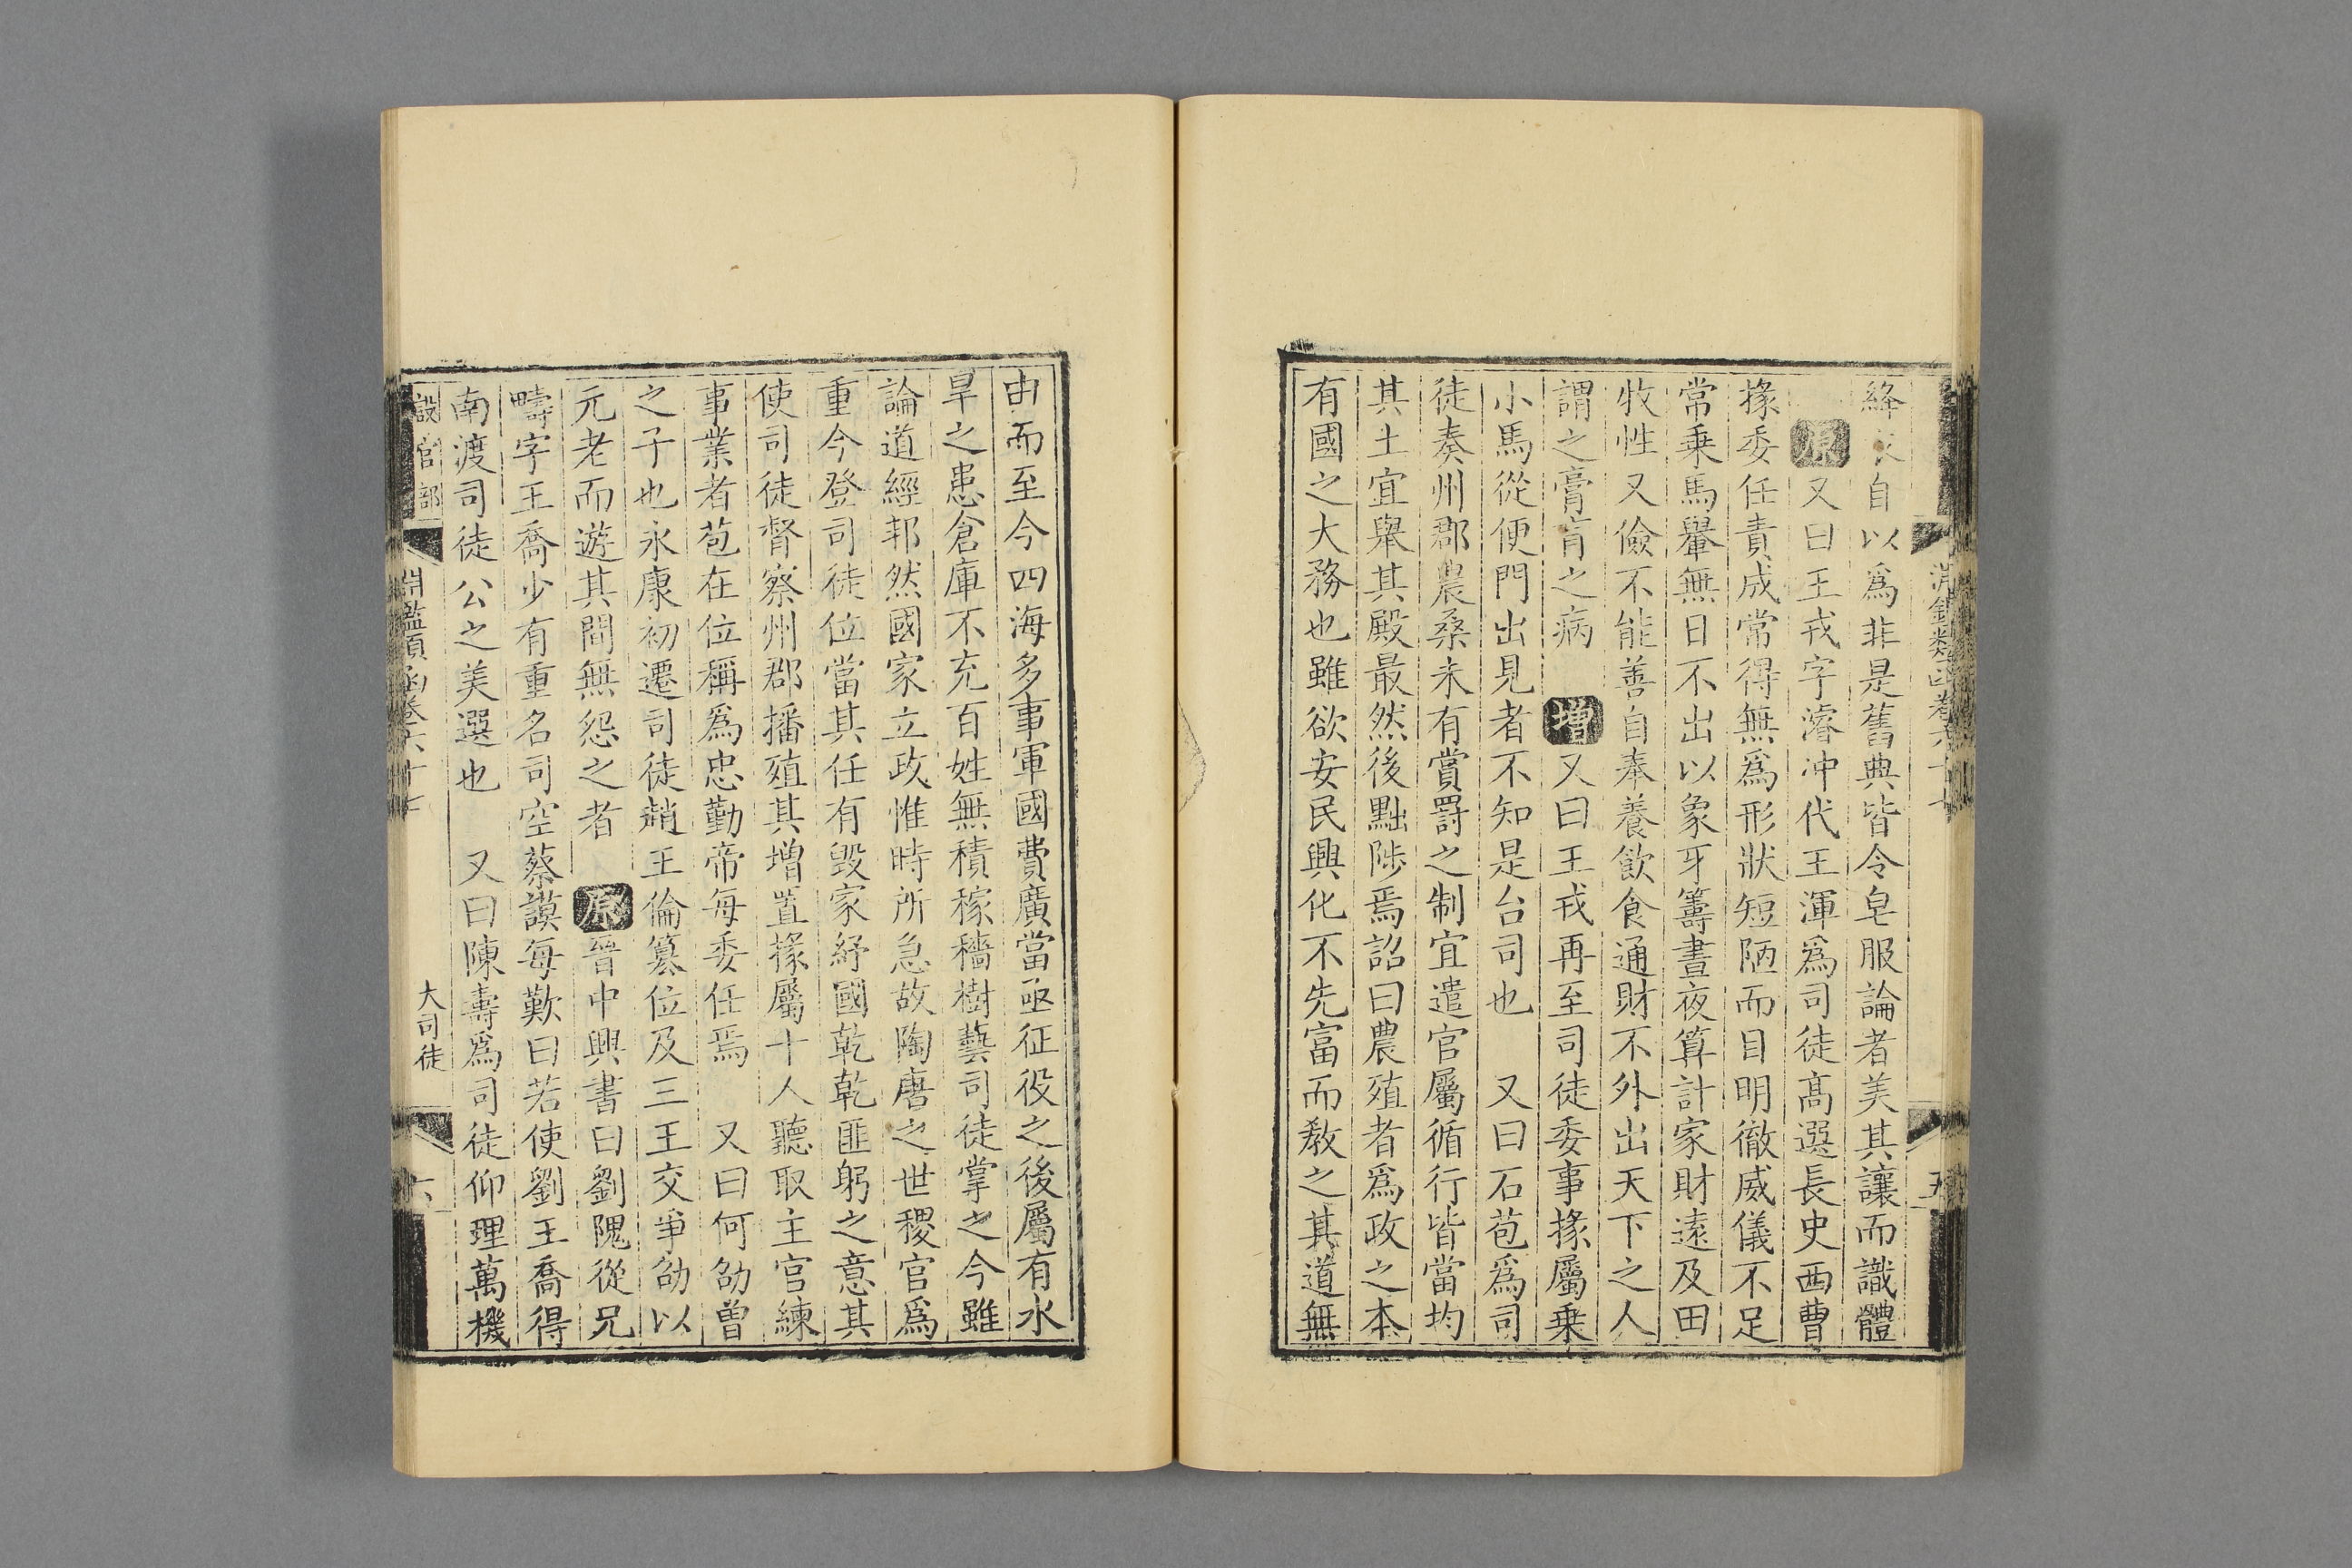 淵鑑類函卷六十七
五
絳衣自以為非是舊典皆令皂服論者美其讓而識體
原又曰王戎字濬冲代王渾為司徒高選長史西曹
掾委任責成常得無為形狀短陋而目明徹威儀不足
常乗馬轝無日不出以象牙籌晝夜算計家財遠及田
牧性又儉不能善自奉養飲食通財不外出天下之人
謂之膏肓之病 增又曰王戎再至司徒委事掾屬乗
小馬從便門出見者不知是台司也 又曰石苞為司
徒奏州郡農桑未有賞罸之制宜遣官屬循行皆當均
其土宜舉其殿最然後黜陟焉詔曰農殖者為政之本
有國之大務也雖欲安民興化不先富而教之其道無
由而至今四海多事軍國費廣當亟征役之後屬有水
旱之患倉庫不充百姓無積稼穡樹藝司徒掌之今雖
論道經邦然國家立政惟時所急故陶唐之世稷官為
重今登司徒位當其任有毁家紓國乾乾匪躬之意其
使司徒督察州郡播殖其增置掾屬十人聽取主官練
事業者苞在位稱為忠勤帝每委任焉 又曰何劭曽
之子也永康初遷司徒趙王倫簒位及三王交爭劭以
元老而遊其間無怨之者 原晉中興書曰劉隗從兄
疇字王喬少有重名司空蔡謨每歎曰若使劉王喬得
南渡司徒公之美選也 又曰陳壽為司徒仰理萬機
設官部
淵鑑類函卷六十七
大司徒
六